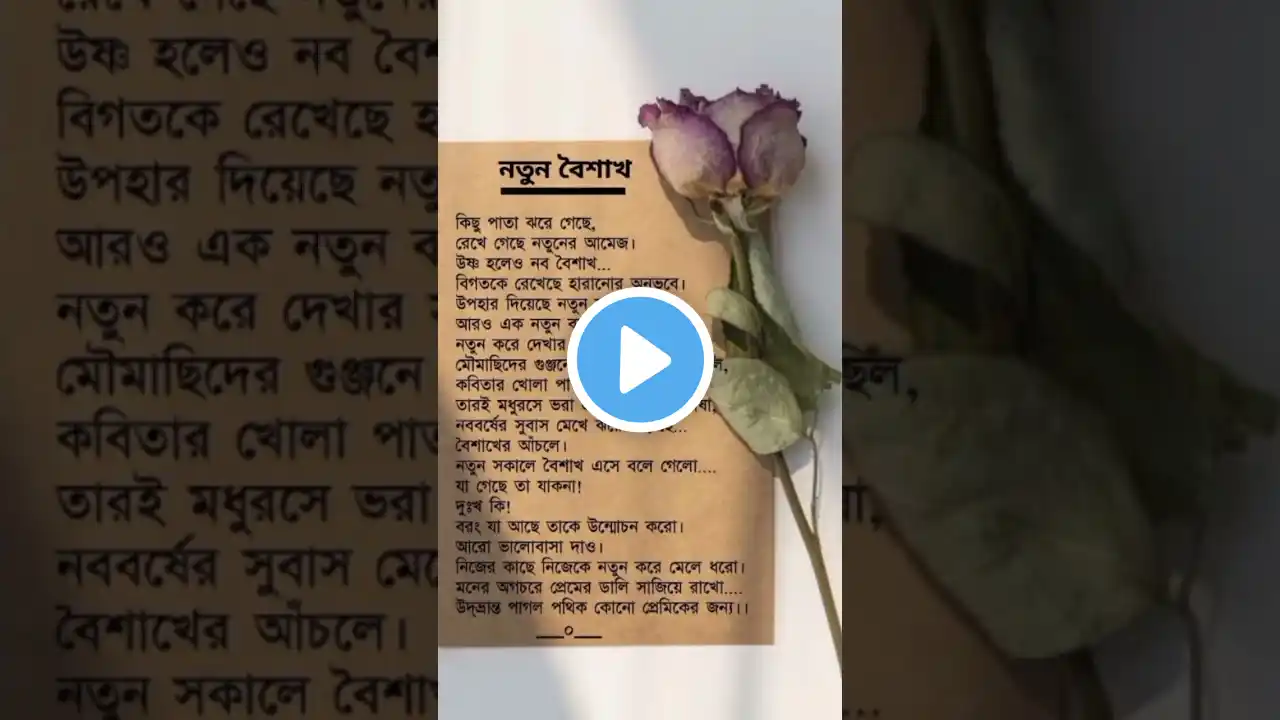 নতুন বৈশাখ
কিছু পাতা ঝরে গেছে,
রেখে গেছে নতুনের আমেজ।
উষ্ণ হলেও নব বৈশাখ...
বিগতকে রেখেছে হারানোর অনুভবে।
উপহার দিয়েছে নতুন
আরও এক নতুন
নতুন করে দেখার
মৌমাছিদের গুঞ্জনে
কবিতার খোলা
তারই মধুরসে ভরা
নববর্ষের সুবাস মেখে
বৈশাখের আঁচলে।
নতুন সকালে বৈশাখ এসে বলে গেলো....
যা গেছে তা যাকনা!
দুঃখ কি!
বরং যা আছে তাকে উন্মোচন করো।
আরো ভালোবাসা দাও।
নিজের কাছে নিজেকে নতুন করে মেলে ধরো।
মনের অগচরে প্রেমের ডালি সাজিয়ে রাখো....
উদ্ভ্রান্ত পাগল পথিক কোনো প্রেমিকের জন্য।।
___০___